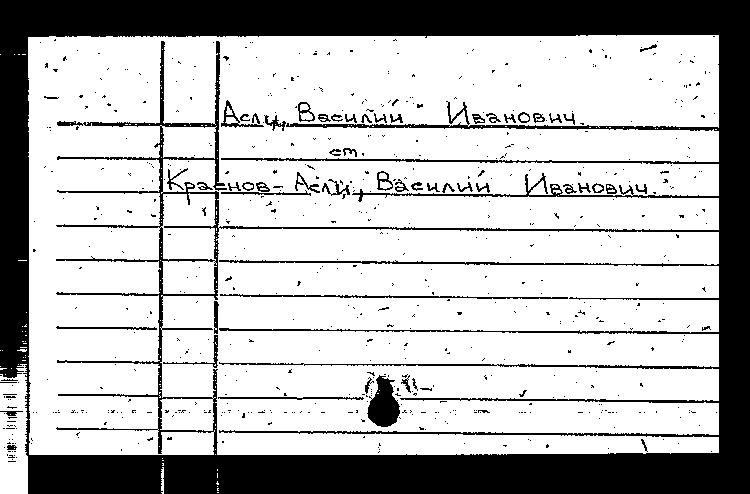 Асли, Василий Иванович.
ст.
Краснов-Асли, Василий Иванович.